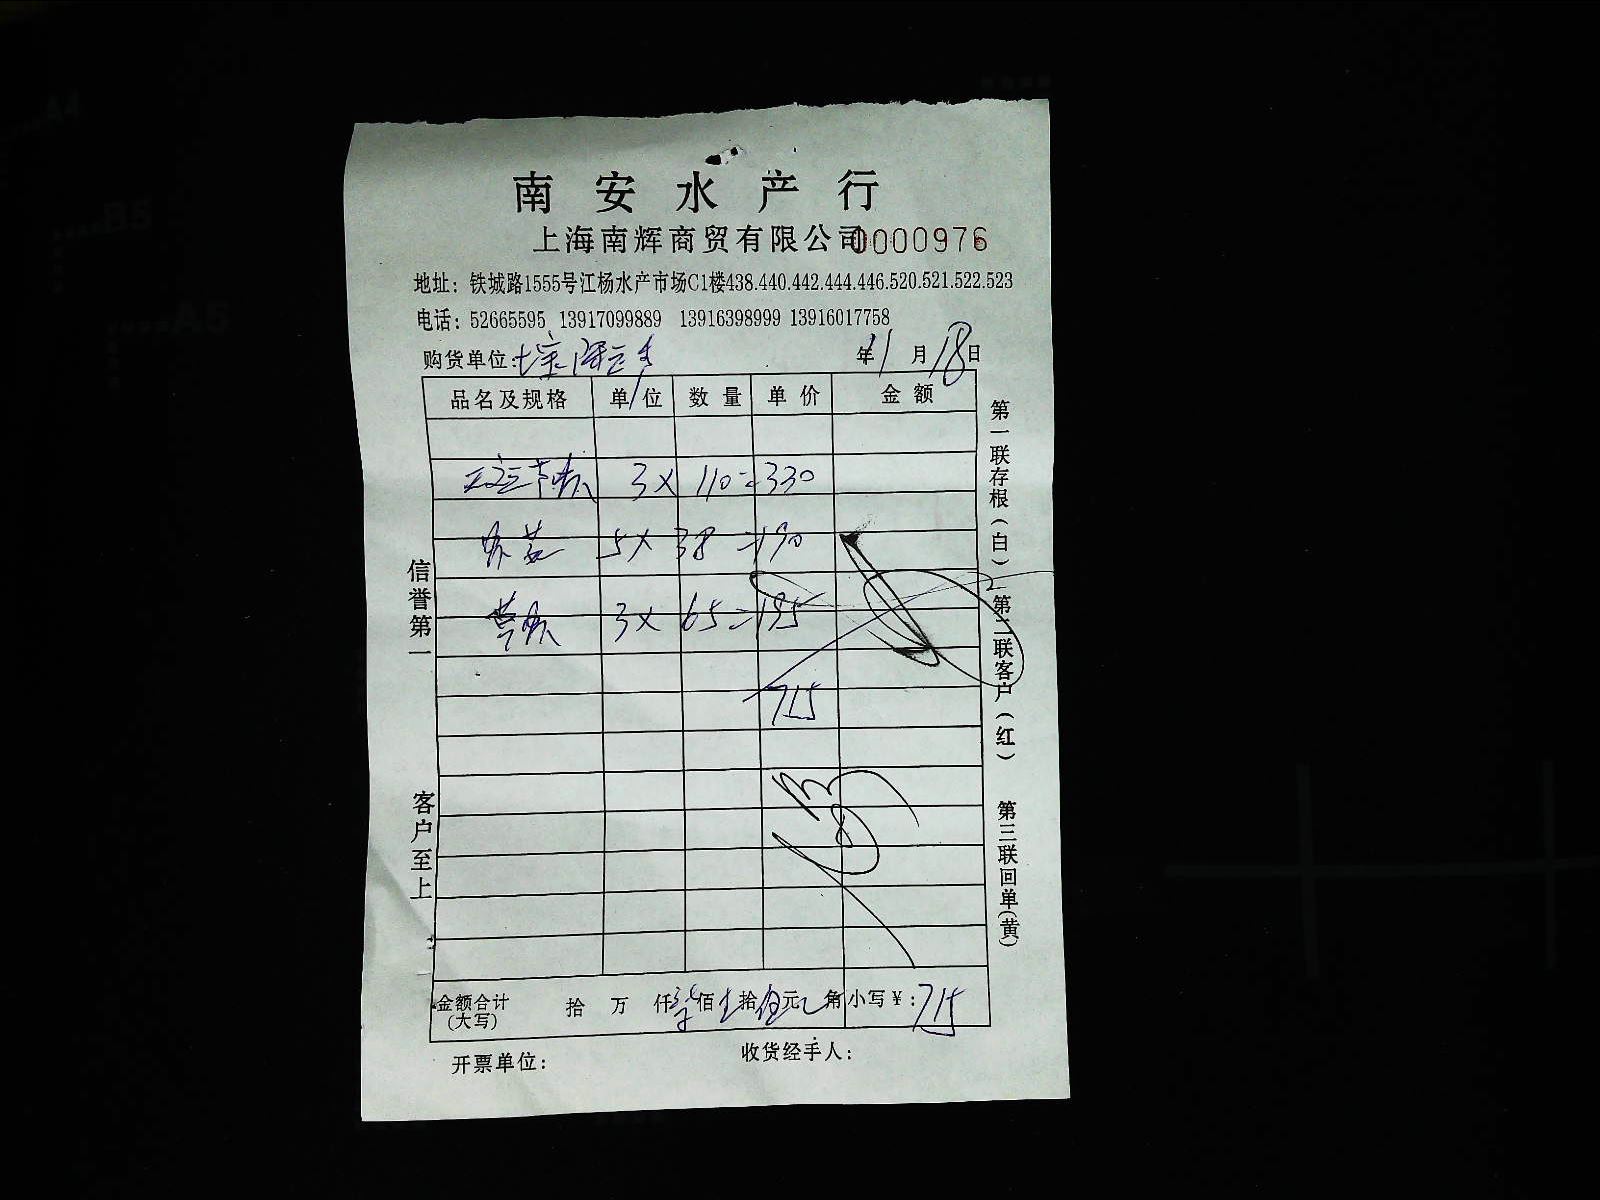 南安水产行
上海南辉商贸有限公司 0000976
地址：铁城路1555号江杨水产市场C1楼438.440.442.444.446.520.521.522.523
电话：52665595 13917099889 13916398999 13916017758
购货单位: 年 11月18日
品名及规格 单位 数量 单价 金额
3× 110=330
5× 38=190
3× 65=195
715
金额合计(大写) 拾 万 仟 柒佰 壹拾 伍元 角 小写￥：715
开票单位： 收货经手人：
信誉第一 客户至上
第一联存根(白) 第二联客户(红) 第三联回单(黄)